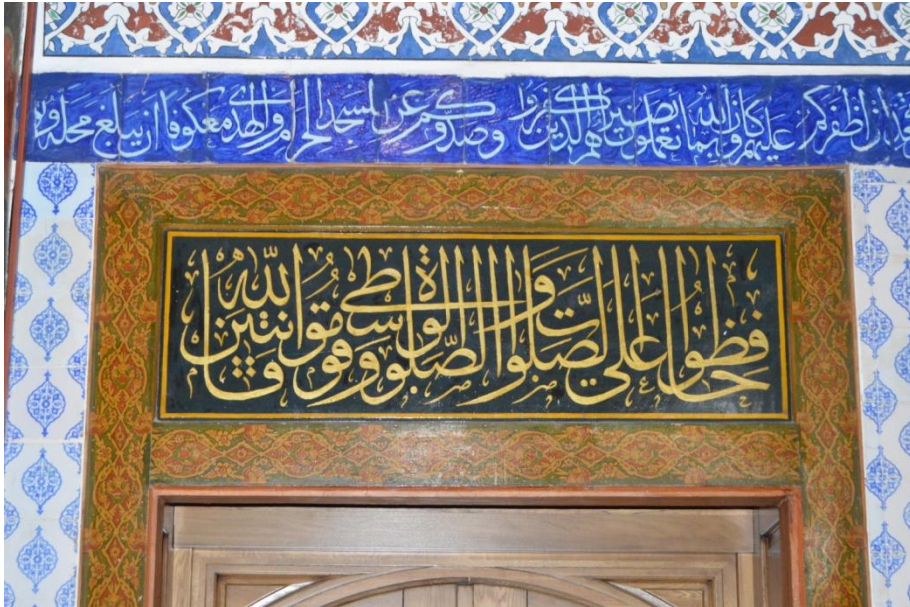 ان اظفركم عليهم وكان الله بما تعملون بصيرا هم الذين كفروا وصدوكم عن المسجد الحرام والهدى معكوفا ان يبلغ محله
حافظوا على الصلوات والصلوة الوسطى وقوموا لله قانتين